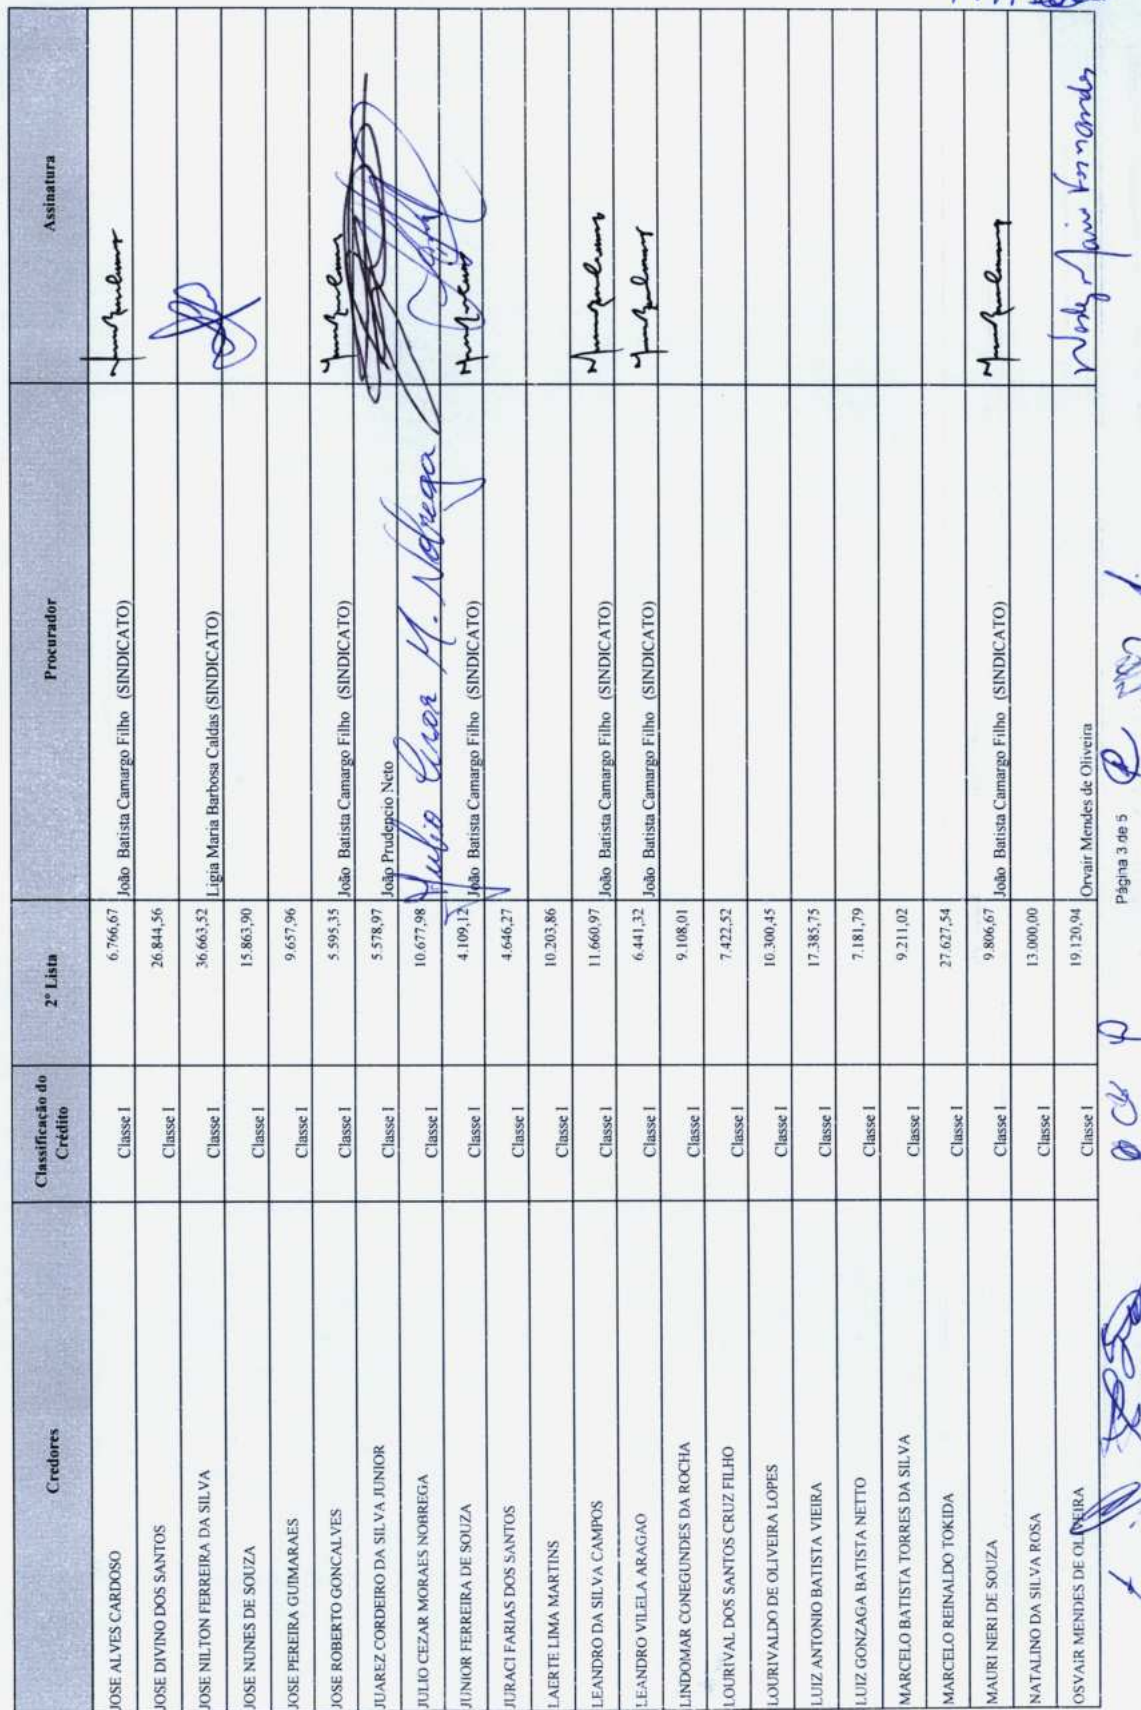 Credores Classificação do Crédito 2ª Lista Procurador Assinatura
JOSE ALVES CARDOSO Classe I 6.766,67 João Batista Camargo Filho (SINDICATO)
JOSE DIVINO DOS SANTOS Classe I 26.844,56
JOSE NILTON FERREIRA DA SILVA Classe I 36.663,52 Ligia Maria Barbosa Caldas (SINDICATO)
JOSE NUNES DE SOUZA Classe I 15.863,90
JOSE PEREIRA GUIMARAES Classe I 9.657,96
JOSE ROBERTO GONCALVES Classe I 5.595,35 João Batista Camargo Filho (SINDICATO)
JUAREZ CORDEIRO DA SILVA JUNIOR Classe I 5.578,97 João Prudencio Neto
JULIO CEZAR MORAES NOBREGA Classe I 10.677,98 Julio Cezar M. Nobrega
JUNIOR FERREIRA DE SOUZA Classe I 4.109,12 João Batista Camargo Filho (SINDICATO)
JURACI FARIAS DOS SANTOS Classe I 4.646,27
LAERTE LIMA MARTINS Classe I 10.203,86
LEANDRO DA SILVA CAMPOS Classe I 11.660,97 João Batista Camargo Filho (SINDICATO)
LEANDRO VILELA ARAGAO Classe I 6.441,32 João Batista Camargo Filho (SINDICATO)
LINDOMAR CONEGUNDES DA ROCHA Classe I 9.108,01
LOURIVAL DOS SANTOS CRUZ FILHO Classe I 7.422,52
LOURIVALDO DE OLIVEIRA LOPES Classe I 10.300,45
LUIZ ANTONIO BATISTA VIEIRA Classe I 17.385,75
LUIZ GONZAGA BATISTA NETTO Classe I 7.181,79
MARCELO BATISTA TORRES DA SILVA Classe I 9.211,02
MARCELO REINALDO TOKIDA Classe I 27.627,54
MAURI NERI DE SOUZA Classe I 9.806,67 João Batista Camargo Filho (SINDICATO)
NATALINO DA SILVA ROSA Classe I 13.000,00
OSVAIR MENDES DE OLIVEIRA Classe I 19.120,94 Orvair Mendes de Oliveira
Página 3 de 5